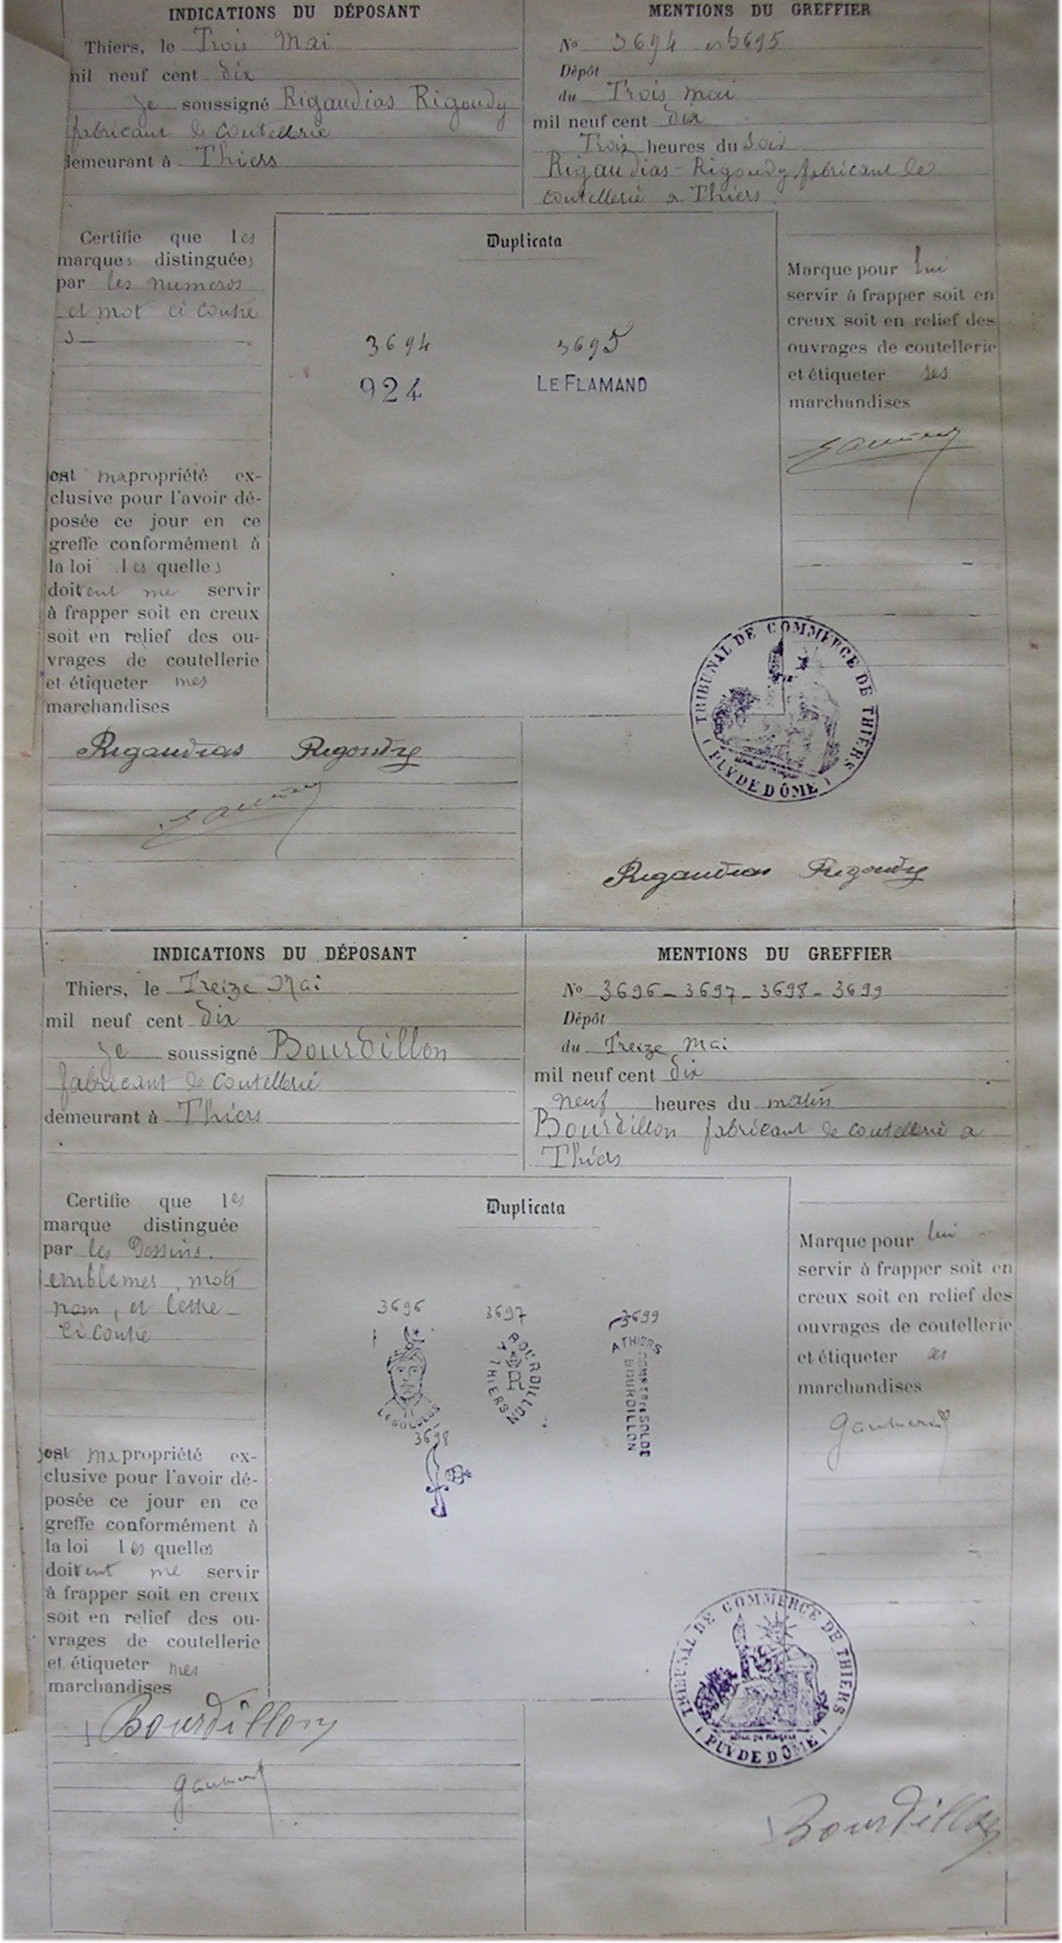 INDICATIONS DU DÉPOSANT
Thiers, le Trois Mai
mil neuf cent dix
Je soussigné Rigaudias Rigoudy
fabricant de coutellerie
demeurant à Thiers
MENTIONS DU GREFFIER
No 3694 et 3695
Dépôt
du Trois mai
mil neuf cent dix
Trois heures du Soir
Rigaudias-Rigoudy fabricant de
coutellerie a Thiers
Certifie que les
marques distinguées
par les numeros
et mot ci contre
est ma propriété ex-
clusive pour l'avoir dé-
posée ce jour en ce
greffe conformément à
la loi les quelles
doivent me servir
à frapper soit en creux
soit en relief des ou-
vrages de coutellerie
et étiqueter mes
marchandises
Duplicata
3694 3695
924 LE FLAMAND
Marque pour lui
servir à frapper soit en
creux soit en relief des
ouvrages de coutellerie
et étiqueter ses
marchandises
TRIBUNAL DE COMMERCE DE THIERS
( PUY DE DÔME )
Rigaudias Rigoudy
Rigaudias Rigoudy
INDICATIONS DU DÉPOSANT
Thiers, le Treize Mai
mil neuf cent dix
Je soussigné Bourdillon
fabricant de coutellerie
demeurant à Thiers
MENTIONS DU GREFFIER
No 3696 - 3697 - 3698 - 3699
Dépôt
du Treize Mai
mil neuf cent dix
neuf heures du matin
Bourdillon fabricant de coutellerie a
Thiers
Certifie que les
marque distinguée
par les Dessins,
emblemes, mots
nom, et lettre
ci contre
est ma propriété ex-
clusive pour l'avoir dé-
posée ce jour en ce
greffe conformément à
la loi les quelles
doivent me servir
à frapper soit en creux
soit en relief des ou-
vrages de coutellerie
et étiqueter mes
marchandises
Duplicata
3696 3697 3699
BOURDILLON
A THIERS
A THIERS
BOURDILLON
3698
Marque pour lui
servir à frapper soit en
creux soit en relief des
ouvrages de coutellerie
et étiqueter ses
marchandises
TRIBUNAL DE COMMERCE DE THIERS
( PUY DE DÔME )
Bourdillon
Bourdillon